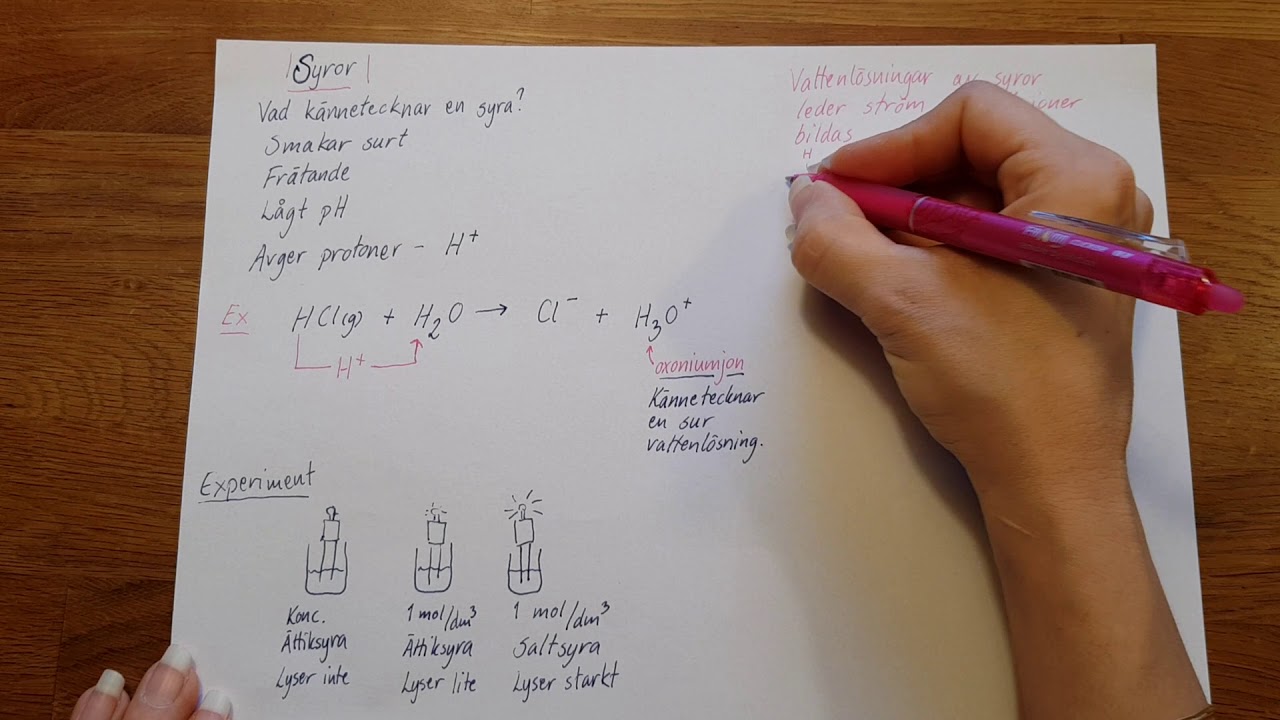 Syror
Vad kännetecknar en syra?
Smakar surt
Frätande
Lågt pH
Avger protoner - H⁺
Ex HCl(g) + H₂O → Cl⁻ + H₃O⁺
H⁺
oxoniumjon
Kännetecknar
en sur
vattenlösning.
Vattenlösningar av syror
leder ström
bildas
H
Experiment
Konc.
Ättiksyra
Lyser inte
1 mol/dm³
Ättiksyra
Lyser lite
1 mol/dm³
Saltsyra
Lyser starkt